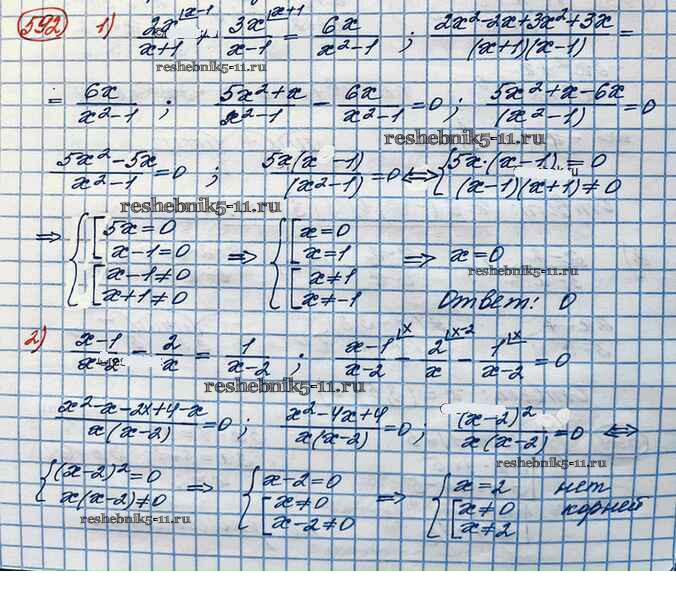 592 1) 2x |x-1 / x+1 + 3x |x+1 / x-1 = 6x / x²-1 ; 2x²-2x+3x²+3x / (x+1)(x-1) =
reshebnik5-11.ru
= 6x / x²-1 ; 5x²+x / x²-1 - 6x / x²-1 = 0 ; 5x²+x-6x / (x²-1) = 0
reshebnik5-11.ru
5x²-5x / x²-1 = 0 ; 5x(x-1) / (x²-1) = 0 ⟺ { 5x·(x-1) = 0
(x-1)(x+1) ≠ 0
reshebnik5-11.ru
⇒ { [ 5x=0 ⇒ { [ x=0
x-1=0 x=1 ⇒ x=0
[ x-1≠0 [ x≠1
reshebnik5-11.ru
x+1≠0 x≠-1 Ответ: 0
2) x-1 / x-2 - 2 / x = 1 / x-2 ; x-1 |x / x-2 - 2 |x-2 / x - 1 |x / x-2 = 0
reshebnik5-11.ru
x²-x-2x+4-x / x(x-2) = 0 ; x²-4x+4 / x(x-2) = 0 ; (x-2)² / x(x-2) = 0 ⟺
reshebnik5-11.ru
{ (x-2)²=0 ⇒ { x-2=0 ⇒ { x=2 нет
x(x-2)≠0 [ x≠0 [ x≠0 корней
reshebnik5-11.ru
x-2≠0 x≠2